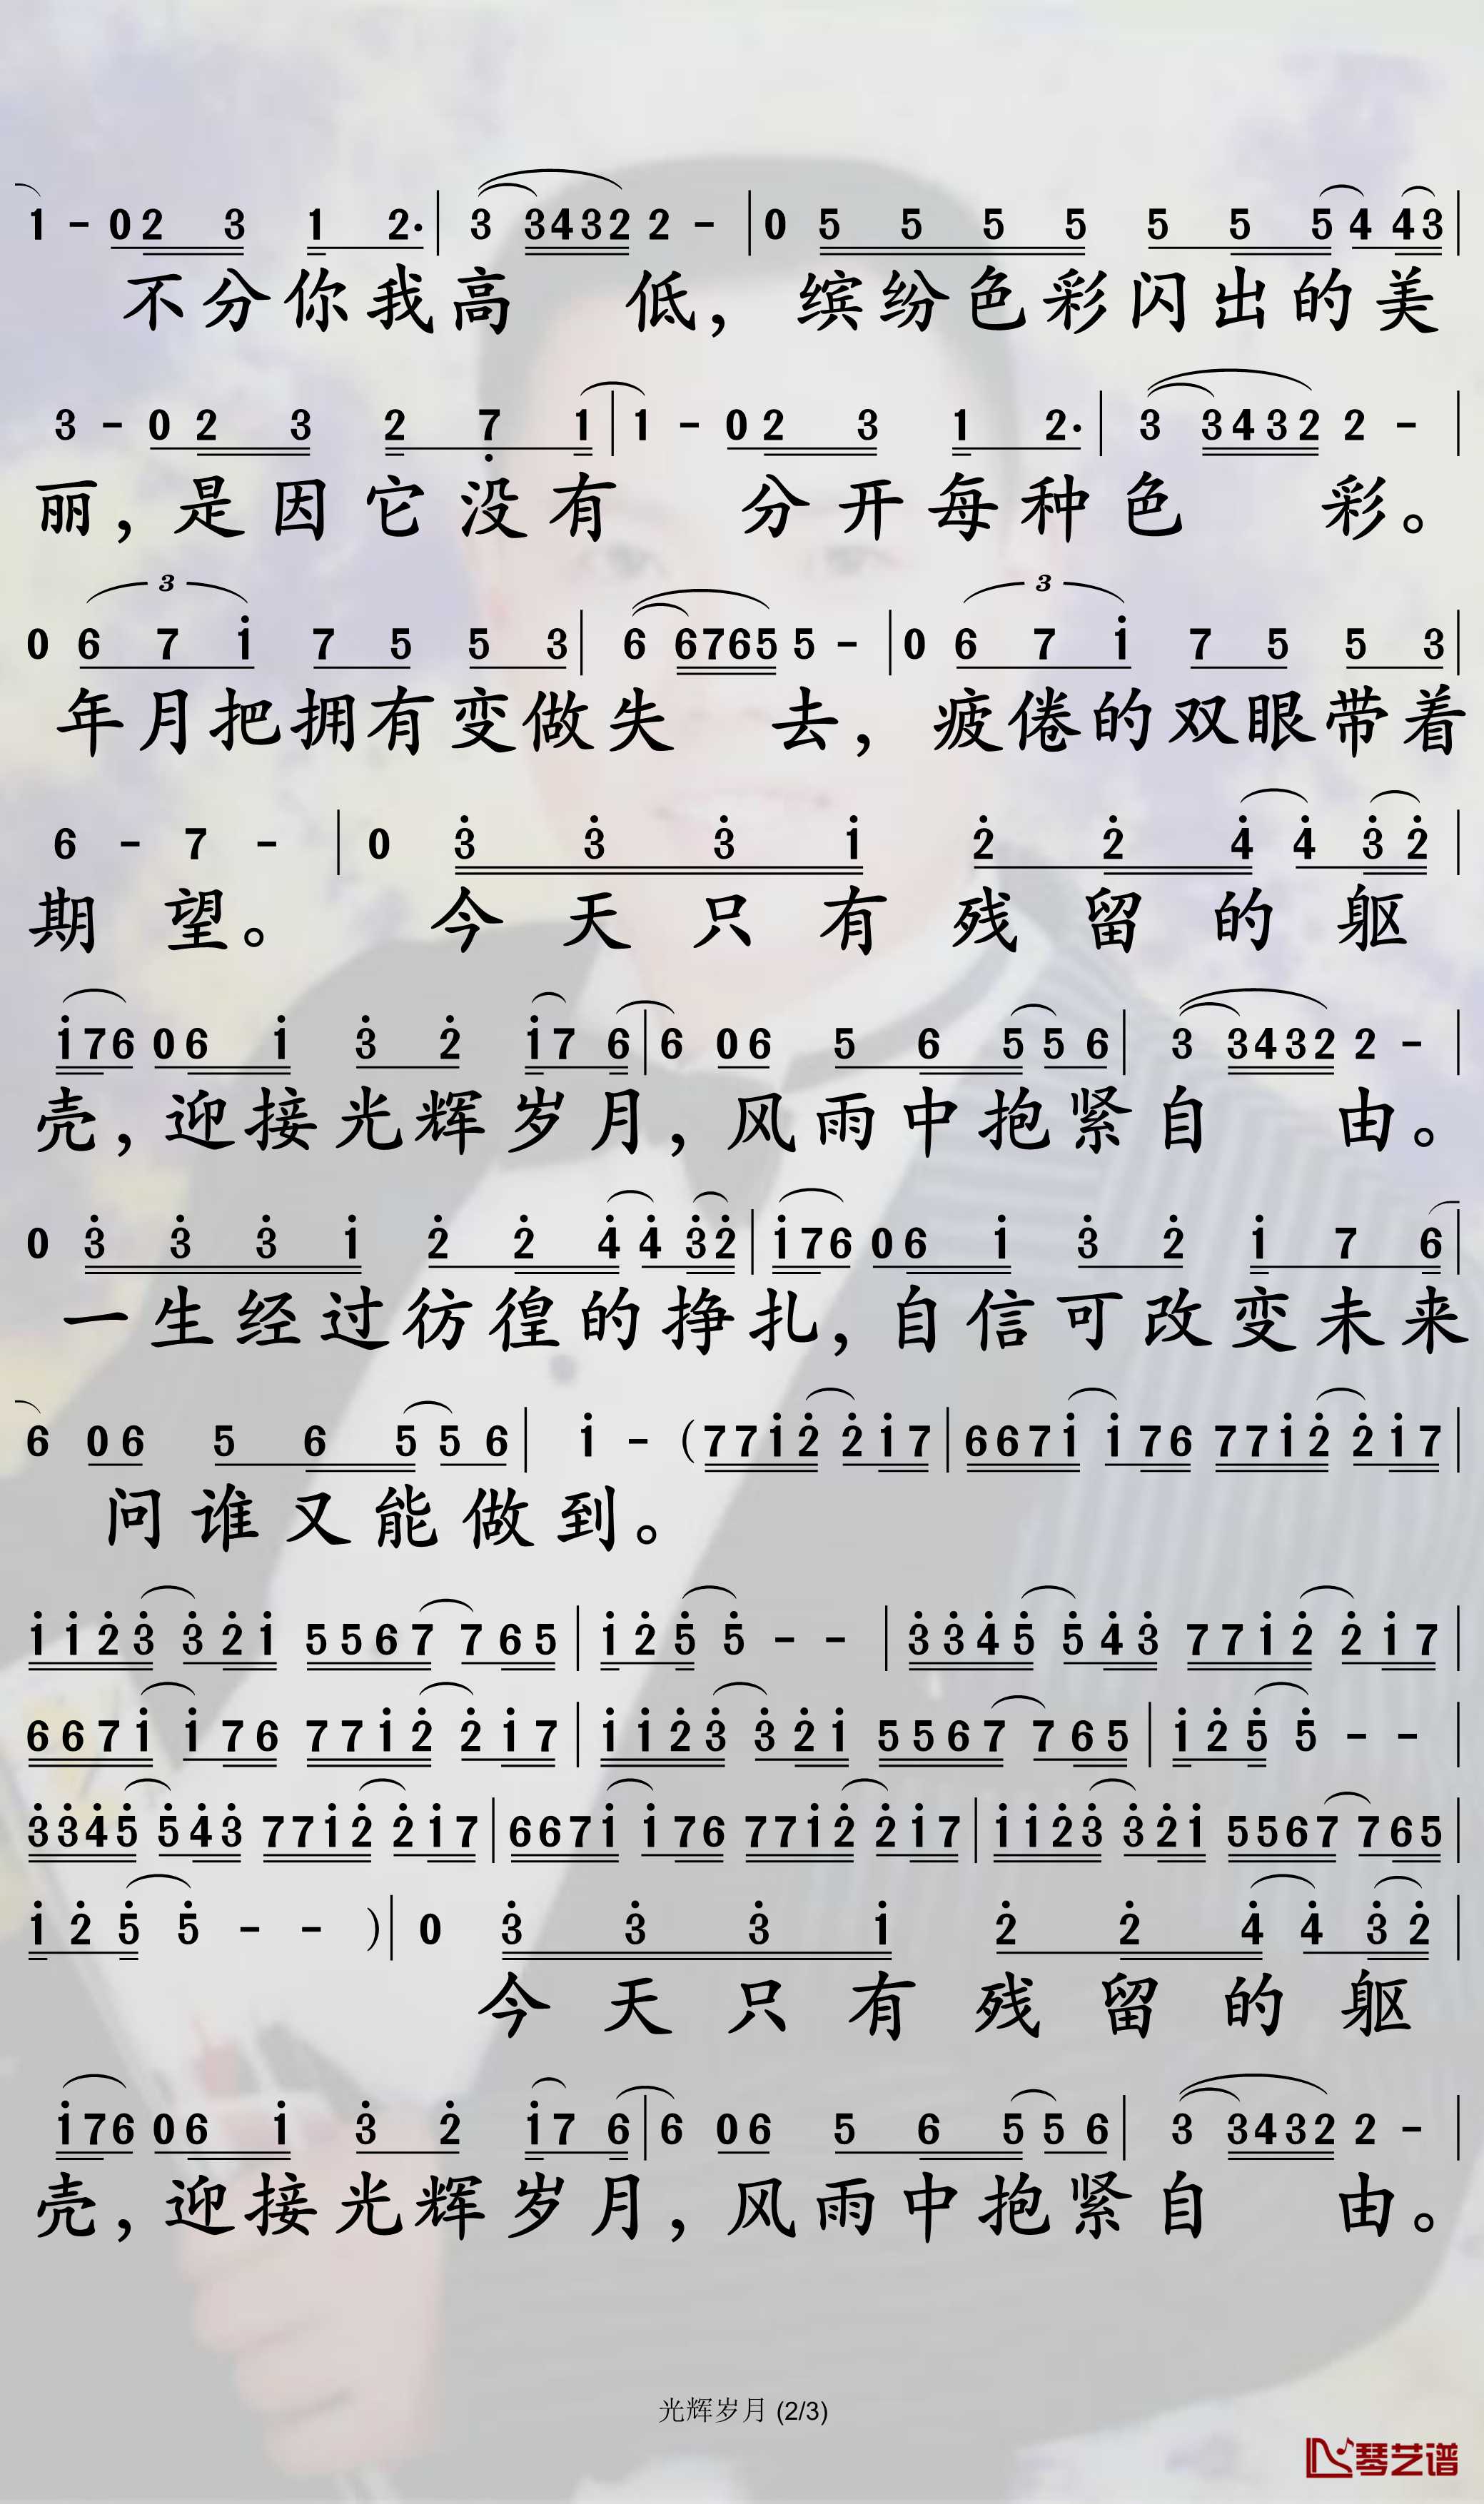 1 - 0 2 3 1 2. | 3 3432 2 - | 0 5 5 5 5 5 5 5 4 4 3 |
不分你我高 低，缤纷色彩闪出的美
3 - 0 2 3 2 7̣ 1 | 1 - 0 2 3 1 2. | 3 3432 2 - |
丽，是因它没有 分开每种色 彩。
3 3
0 6 7 i 7 5 5 3 | 6 6765 5 - | 0 6 7 i 7 5 5 3 |
年月把拥有变做失 去，疲倦的双眼带着
6 - 7 - | 0 3̇ 3̇ 3̇ i 2̇ 2̇ 4̇ 4̇ 3̇ 2̇ |
期望。 今天只有残留的躯
i76 06 i 3̇ 2̇ i7 6 | 6 06 5 6 5 5 6 | 3 3432 2 - |
壳，迎接光辉岁月，风雨中抱紧自 由。
0 3̇ 3̇ 3̇ i 2̇ 2̇ 4̇ 4̇ 3̇2̇ | i76 06 i 3̇ 2̇ i 7 6 |
一生经过彷徨的挣扎，自信可改变未来
6 06 5 6 5 5 6 | i - (77i2̇ 2̇i7 | 667i i76 77i2̇ 2̇i7 |
问谁又能做到。
ii2̇3̇ 3̇2̇i 5567 765 | i2̇5̇ 5̇ - - | 3̇3̇4̇5̇ 5̇4̇3̇ 77i2̇ 2̇i7 |
667i i76 77i2̇ 2̇i7 | ii2̇3̇ 3̇2̇i 5567 765 | i2̇5̇ 5̇ - - |
3̇3̇4̇5̇ 5̇4̇3̇ 77i2̇ 2̇i7 | 667i i76 77i2̇ 2̇i7 | ii2̇3̇ 3̇2̇i 5567 765 |
i 2̇ 5̇ 5̇ - - ) | 0 3̇ 3̇ 3̇ i 2̇ 2̇ 4̇ 4̇ 3̇ 2̇ |
今天只有残留的躯
i76 06 i 3̇ 2̇ i7 6 | 6 06 5 6 5 5 6 | 3 3432 2 - |
壳，迎接光辉岁月，风雨中抱紧自 由。
光辉岁月 (2/3)
琴艺谱